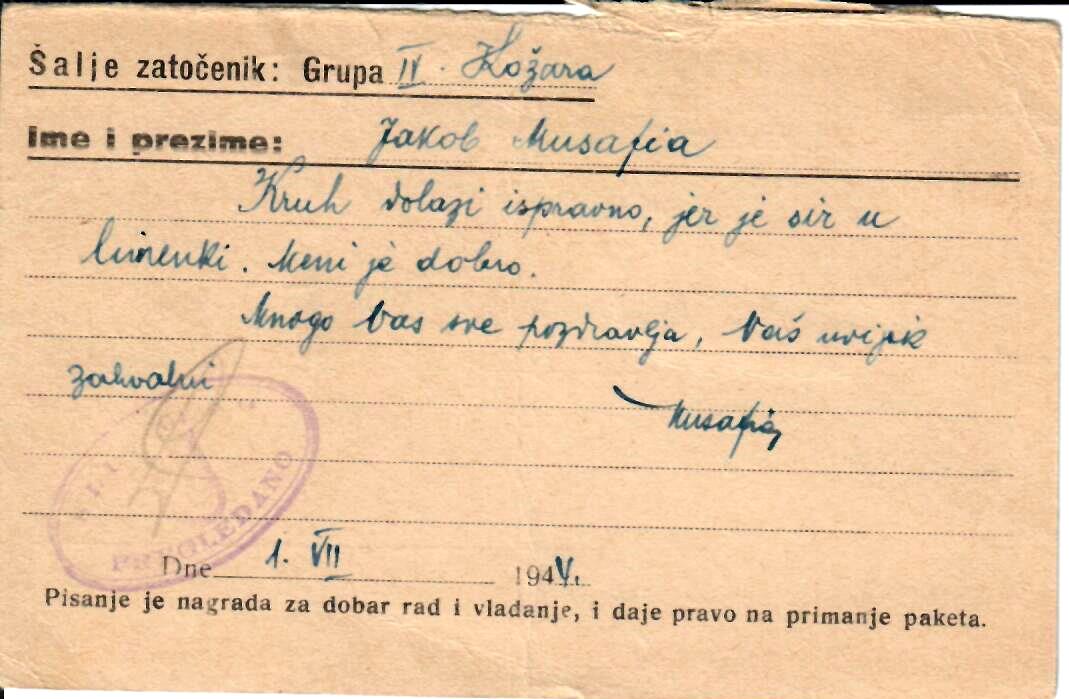 Šalje zatočenik: Grupa IV. Kožara
Ime i prezime: Jakob Musafia
Kruh dolazi ispravno, jer je sir u
limenki. Meni je dobro.
Mnogo Vas sve pozdravlja, Vaš uvijek
zahvalni
Musafia
PREGLEDANO
Dne 1. VII 1944.
Pisanje je nagrada za dobar rad i vladanje, i daje pravo na primanje paketa.